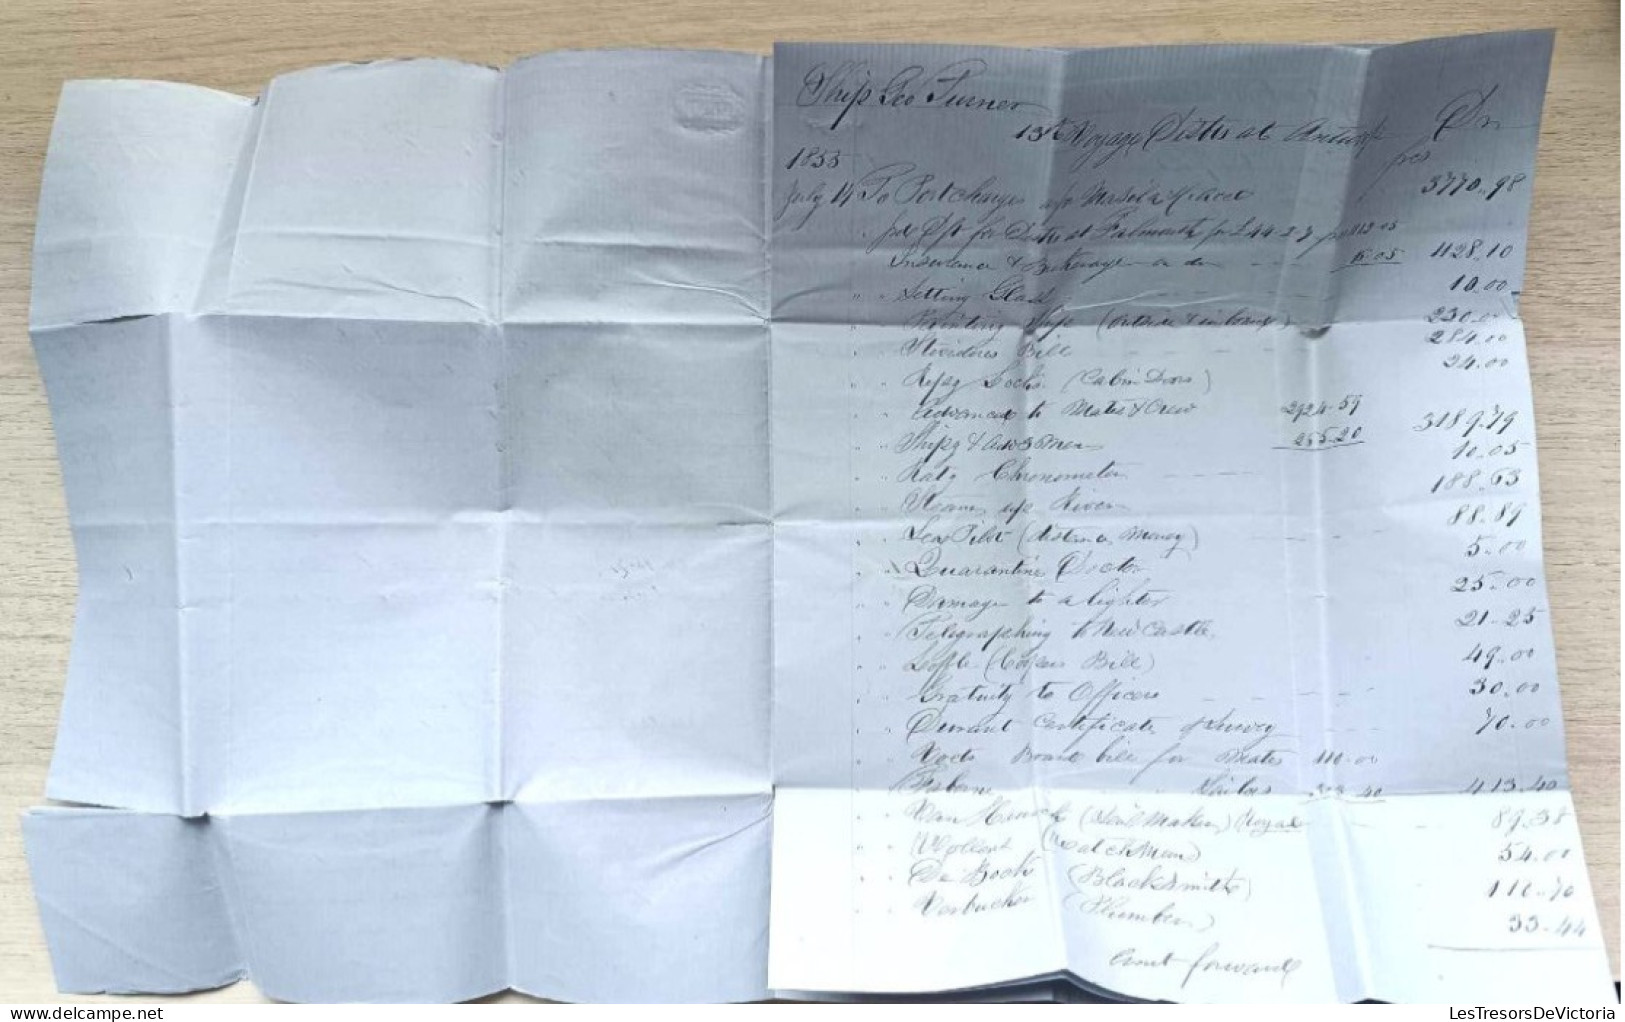 Ship Geo Turner
13th Voyage Disbts at Antwerp Dr
1855 frcs
July 14 To Port charges 3770.98
for Disbts at Falmouth for £44 2 7 1113 05
Insurance & Brokerage on do 15.05 1128.10
" " Setting Glass 10.00
Painting Ship (outside & inboard) 230.00
" " Stevidores Bill 284.00
" " Repg Locks (Cabin Doors) 24.00
" " Advanced to Mates & Crew 2924.59
" " Shipg & adv 3 Men 265.20 3189.79
" " Ratg Chronometer 10.05
" " Steam up River 188.63
" " Sea Pilot (distance Money) 88.89
" " Quarantine Doctor 5.00
" " Damage to a lighter 25.00
" " Telegraphing to New Castle 21.25
" " (Coopers Bill) 49.00
" " Gratuity to Officers 30.00
" " Certificate of Survey 70.00
" " Board bill for Mates 110.00
" " Sailors 303.40 413.40
" " Van (Sail Maker) 89.38
" " (Watchman) 54.00
" " De Bock (Blacksmith) 112.70
" " Verbucken (Plumber) 33.44
Amt forward
LesTresorsDeVictoria
www.delcampe.net